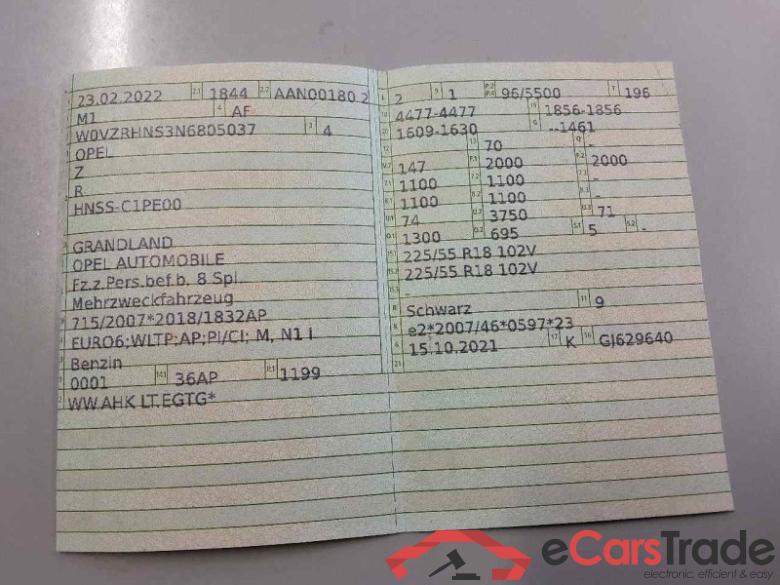 23.02.2022 2.1 1844 2.2 AAN00180 2
M1 4 AF
W0VZRHNS3N6805037 3 4
OPEL
Z
R
HNSS-C1PE00
GRANDLAND
OPEL AUTOMOBILE
Fz.z.Pers.bef.b. 8 Spl.
Mehrzweckfahrzeug
715/2007*2018/1832AP
EURO6;WLTP;AP;PI/CI; M, N1 I
Benzin
0001 14.1 36AP P.1 1199
WW.AHK LT.EGTG*
2 9 1 P.2 P.4 96/5500 T 196
18 4477-4477 19 1856-1856
20 1609-1630 G --1461
12 - 13 70 Q -
V.7 147 F.1 2000 F.2 2000
7.1 1100 7.2 1100 7.3 -
8.1 1100 8.2 1100 8.3 -
U.1 74 U.2 3750 U.3 71
O.1 1300 O.2 695 S.1 5 S.2 -
15.1 225/55 R18 102V
15.2 225/55 R18 102V
15.3 -
R Schwarz 11 9
K e2*2007/46*0597*23
6 15.10.2021 17 K 16 GI629640
21
eCarsTrade
electronic, efficient & easy